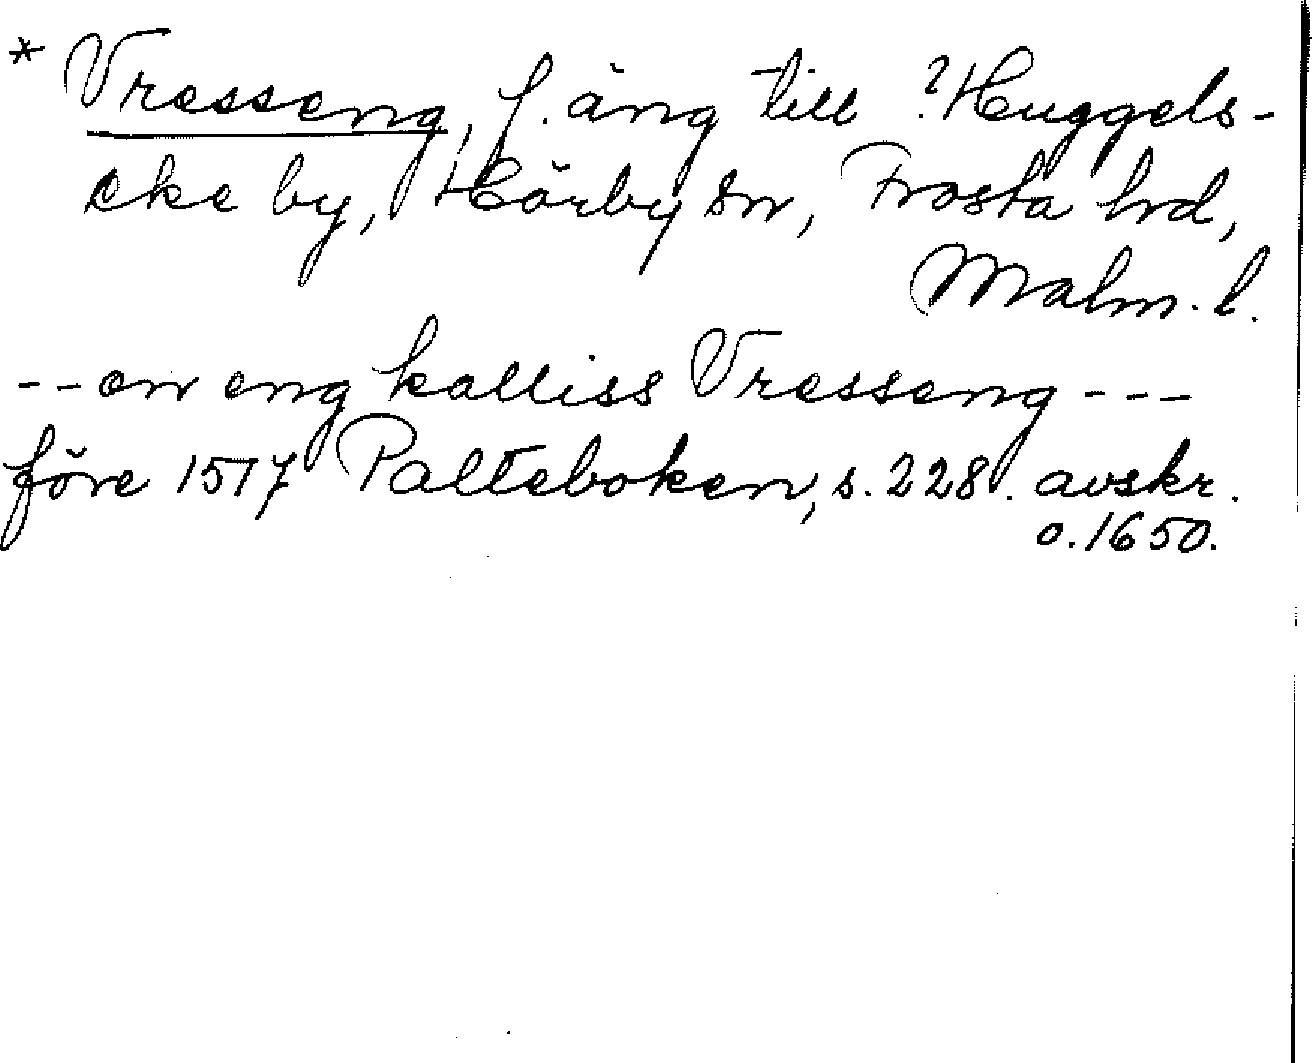 * Vresseng, f. äng till ?Huggels-
eke by, Hörby sn, Frosta hd,
Malm. l.
-- en eng kalliss Vresseng ---
före 1517 Palteboken, s. 228. avskr.
o. 1650.